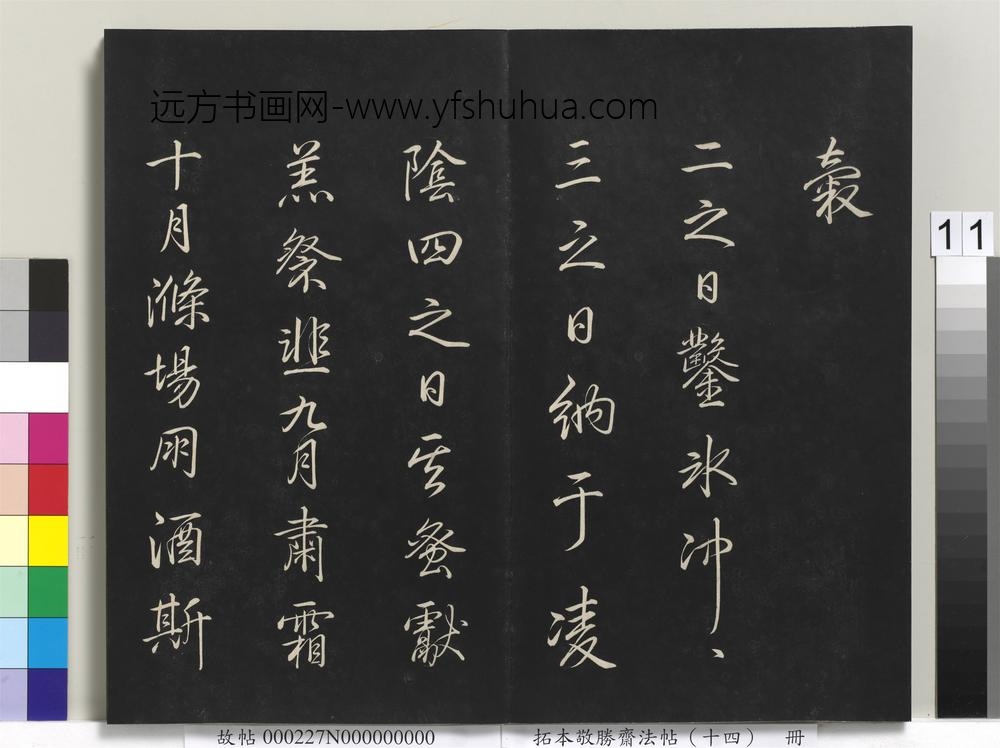 远方书画网-www.yfshuhua.com
穀
二之日鑿冰冲丶
三之日納于凌
陰四之日其蚤獻
羔祭韭九月肅霜
十月滌場朋酒斯
11
故帖 000227N000000000 拓本敬勝齋法帖（十四） 冊